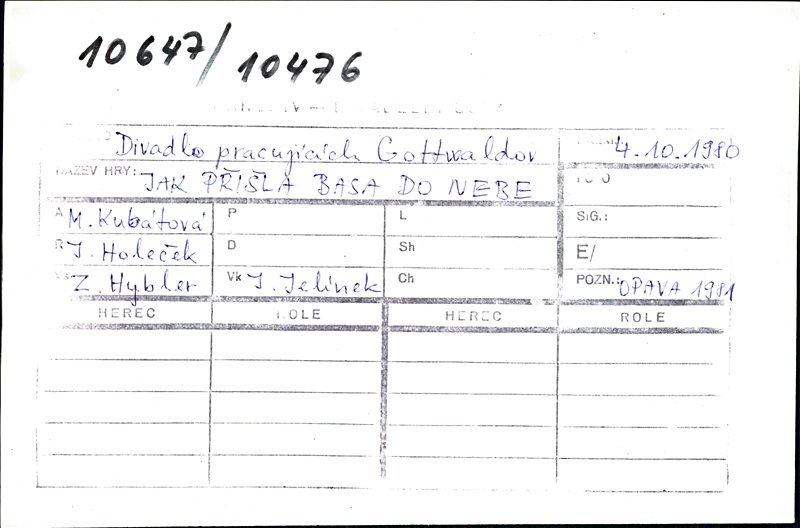 10647/10476
Divadlo pracujících Gottwaldov 4.10.1980
NÁZEV HRY: JAK PŘIŠLA BASA DO NEBE
A M. Kubátová P L SIG.:
R J. Holeček D Sh E/
Z. Hybler Vk J. Jelínek Ch POZN.: OPAVA 1981
HEREC ROLE HEREC ROLE